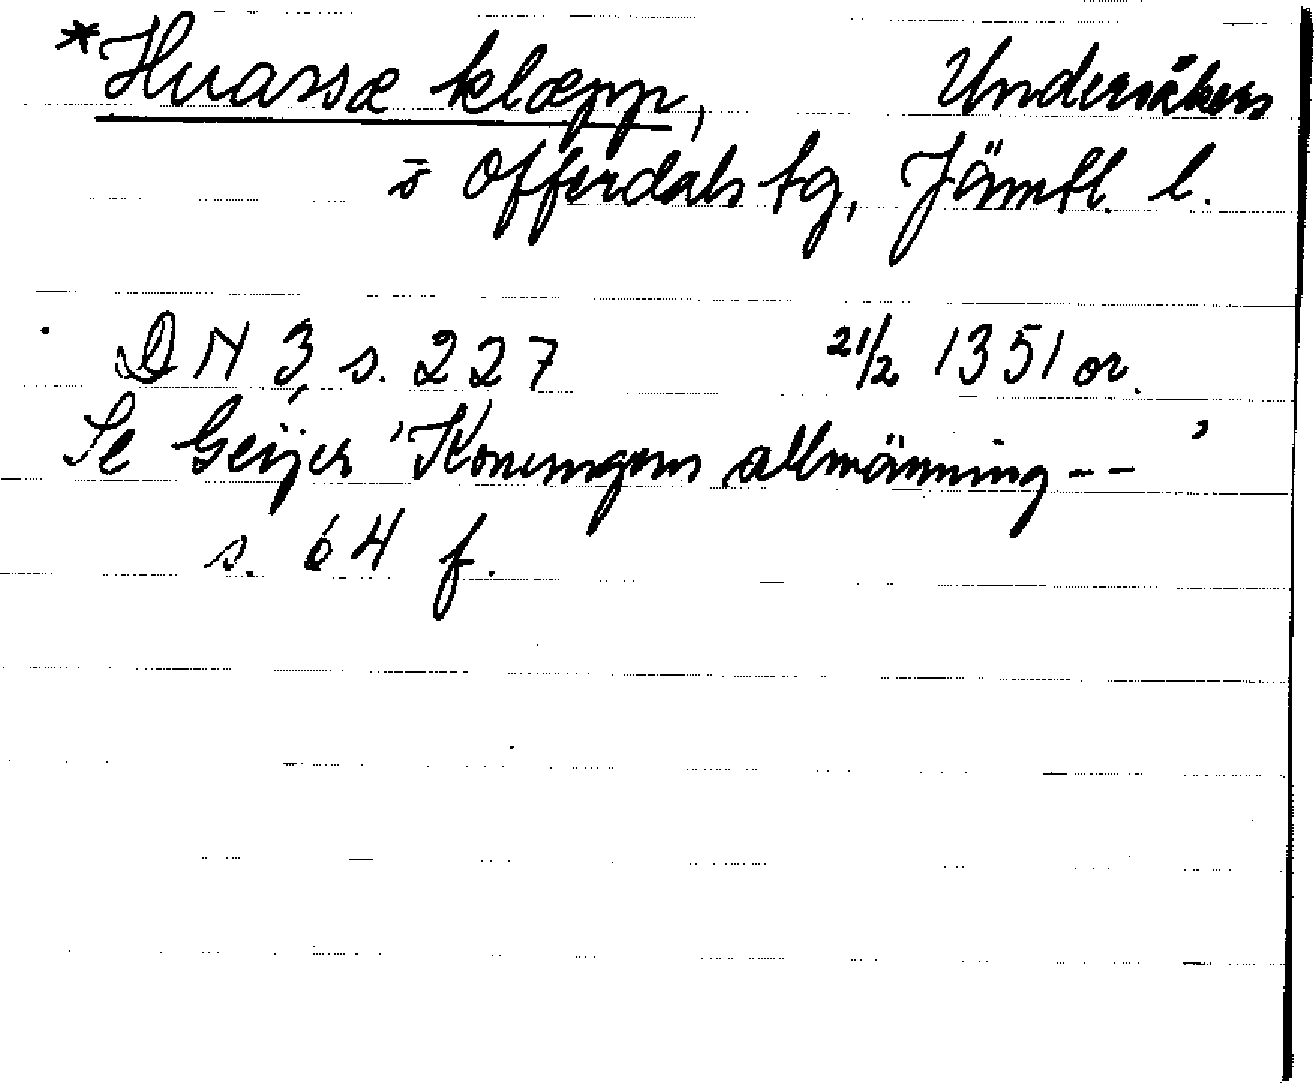 *Huassæ klæpp, Undersåkers
o Offerdals tg, Jämtl. l.
DN 3, s. 227 21/2 1351 or.
Se Geijer 'Konungens allmänning -- '
s. 64 f.